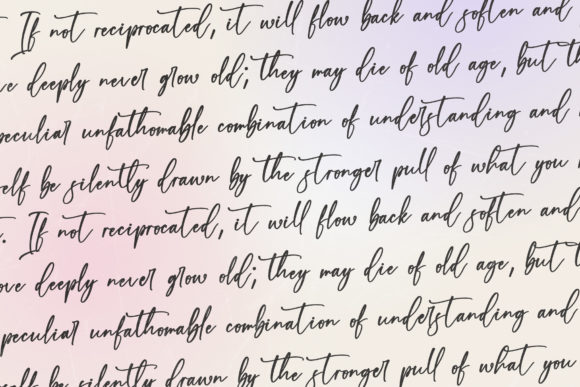 If not reciprocated, it will flow back and soften and
ve deeply never grow old; they may die of old age, but th
peculiar unfathomable combination of understanding and
self be silently drawn by the stronger pull of what you
. If not reciprocated, it will flow back and soften and
ove deeply never grow old; they may die of old age, but t
peculiar unfathomable combination of understanding and
self be silently drawn by the stronger pull of what you